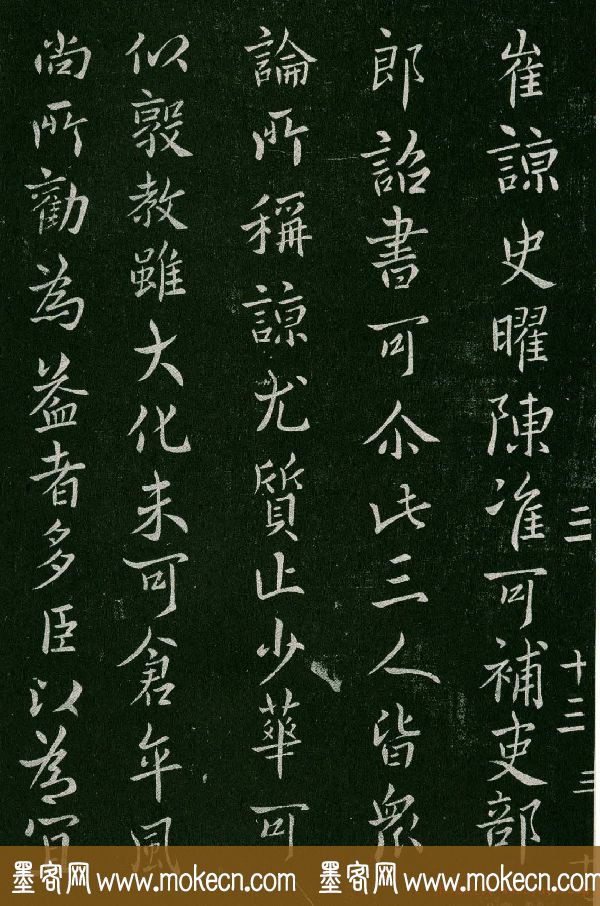 崔諒史曜陳准可補吏部
郎詔書可尒此三人皆眾
論所稱諒尤質止少華可
以敦教雖大化未可倉卒風
尚所勸為益者多臣以為宜
三
十三
三
墨客网 www.mokecn.com 墨客网 www.mokecn.com